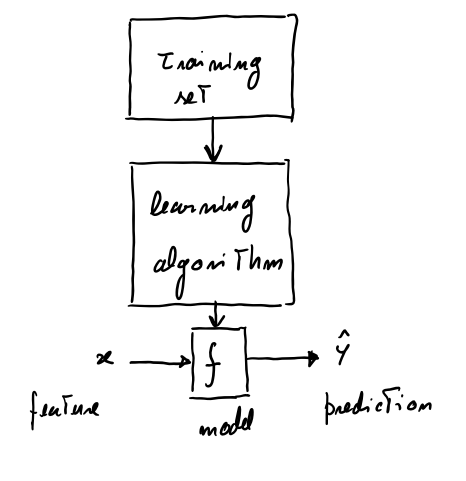 training
set
learning
algorithm
x f ŷ
feature model prediction